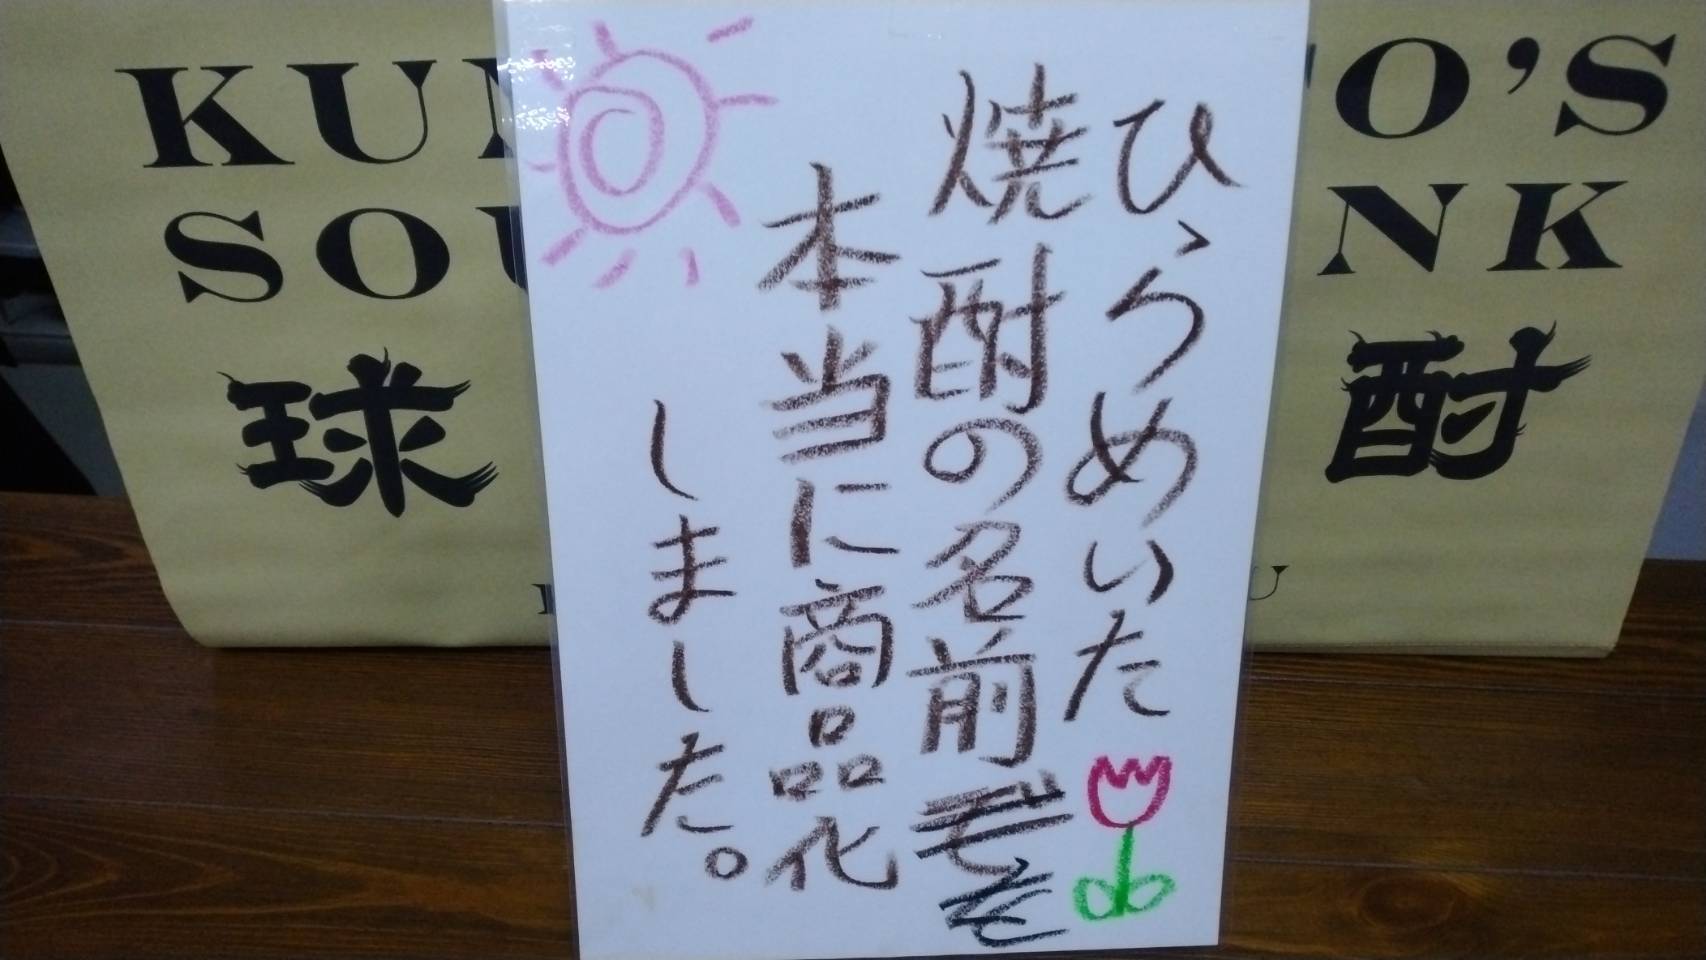 ひらめいた
焼酎の名前を
本当に商品化
しました。
KU
O'S
SO
NK
球
酎
U